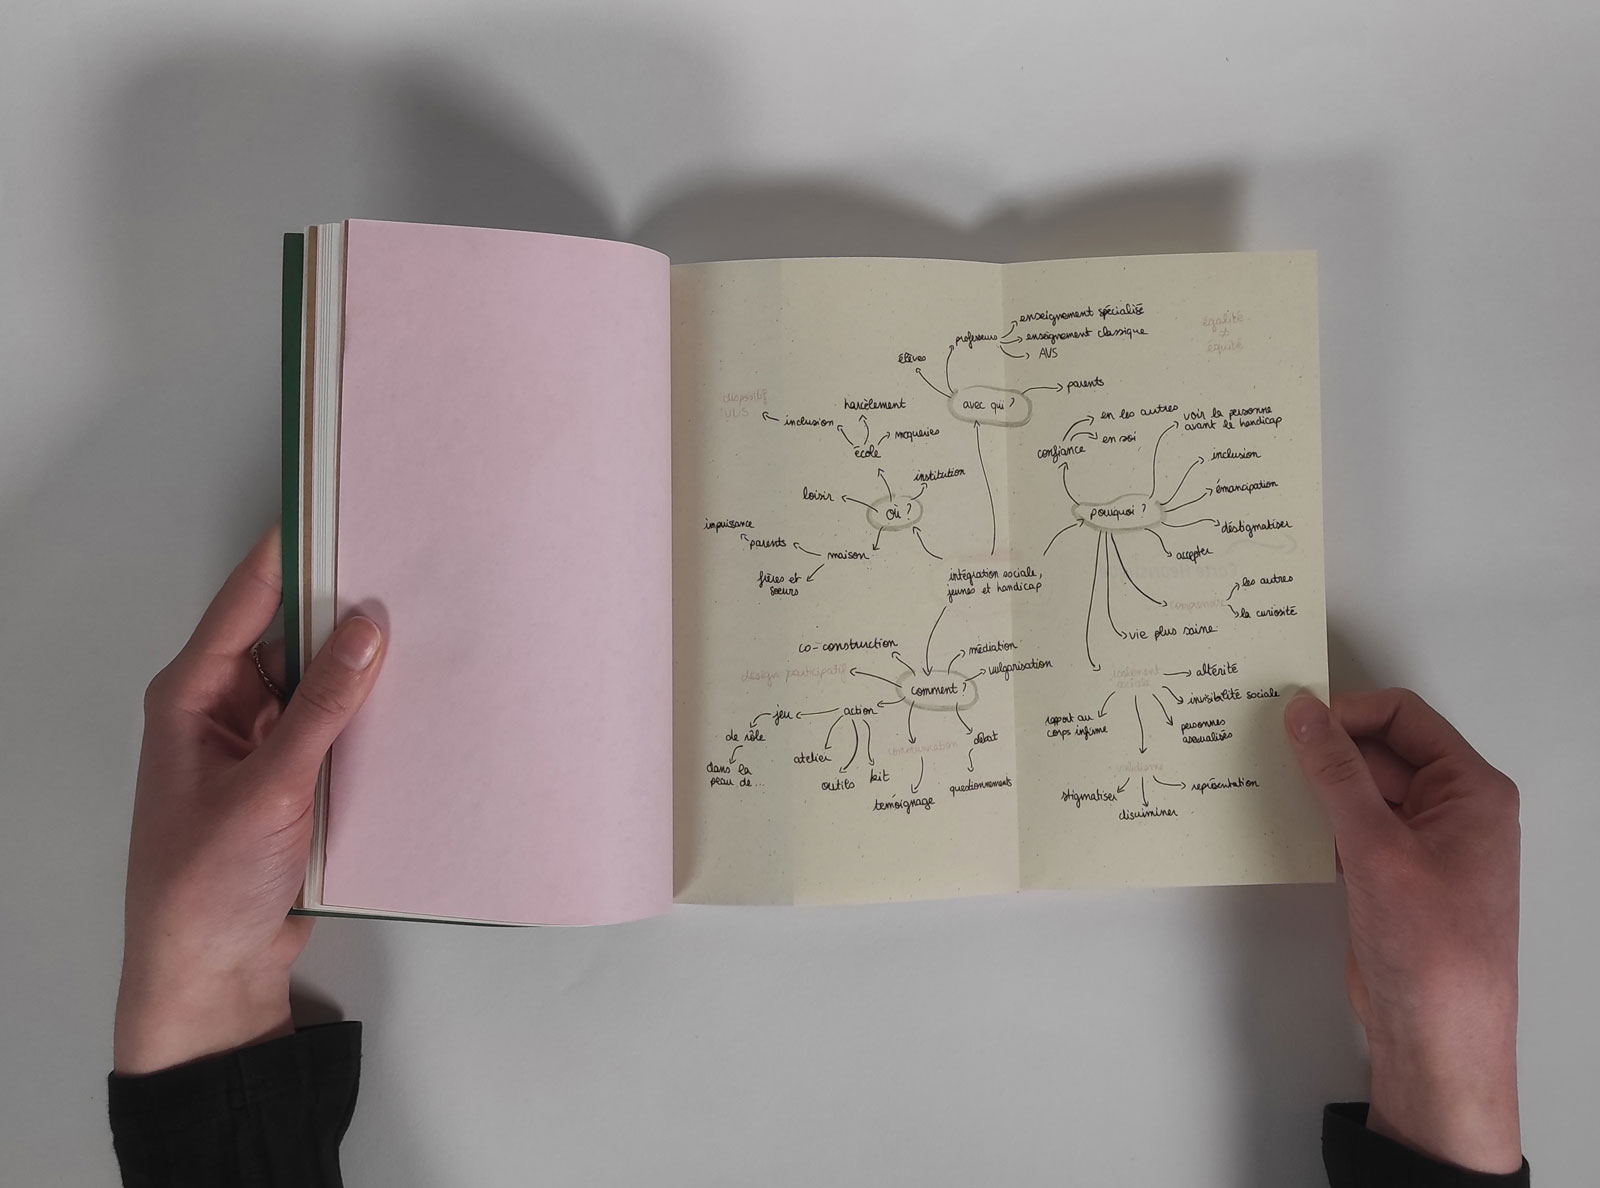 enseignement spécialisé
professeurs
enseignement classique
AVS
élèves
parents
avec qui ?
égalité
≠
équité
dispositif
ULIS
harcèlement
inclusion
moqueries
école
institution
loisir
où ?
impuissance
parents
maison
frères et
soeurs
en les autres
en soi
confiance
voir la personne
avant le handicap
inclusion
émancipation
pourquoi ?
déstigmatiser
accepter
les autres
la curiosité
vie plus saine
intégration sociale,
jeunes et handicap
co-construction
médiation
vulgarisation
design participatif
comment ?
jeu
action
de rôle
dans la
peau de...
atelier
outils
kit
communication
témoignage
débat
questionnements
altérité
invisibilité sociale
rapport au
corps infirme
personnes
asexualisés
stigmatiser
représentation
discriminer